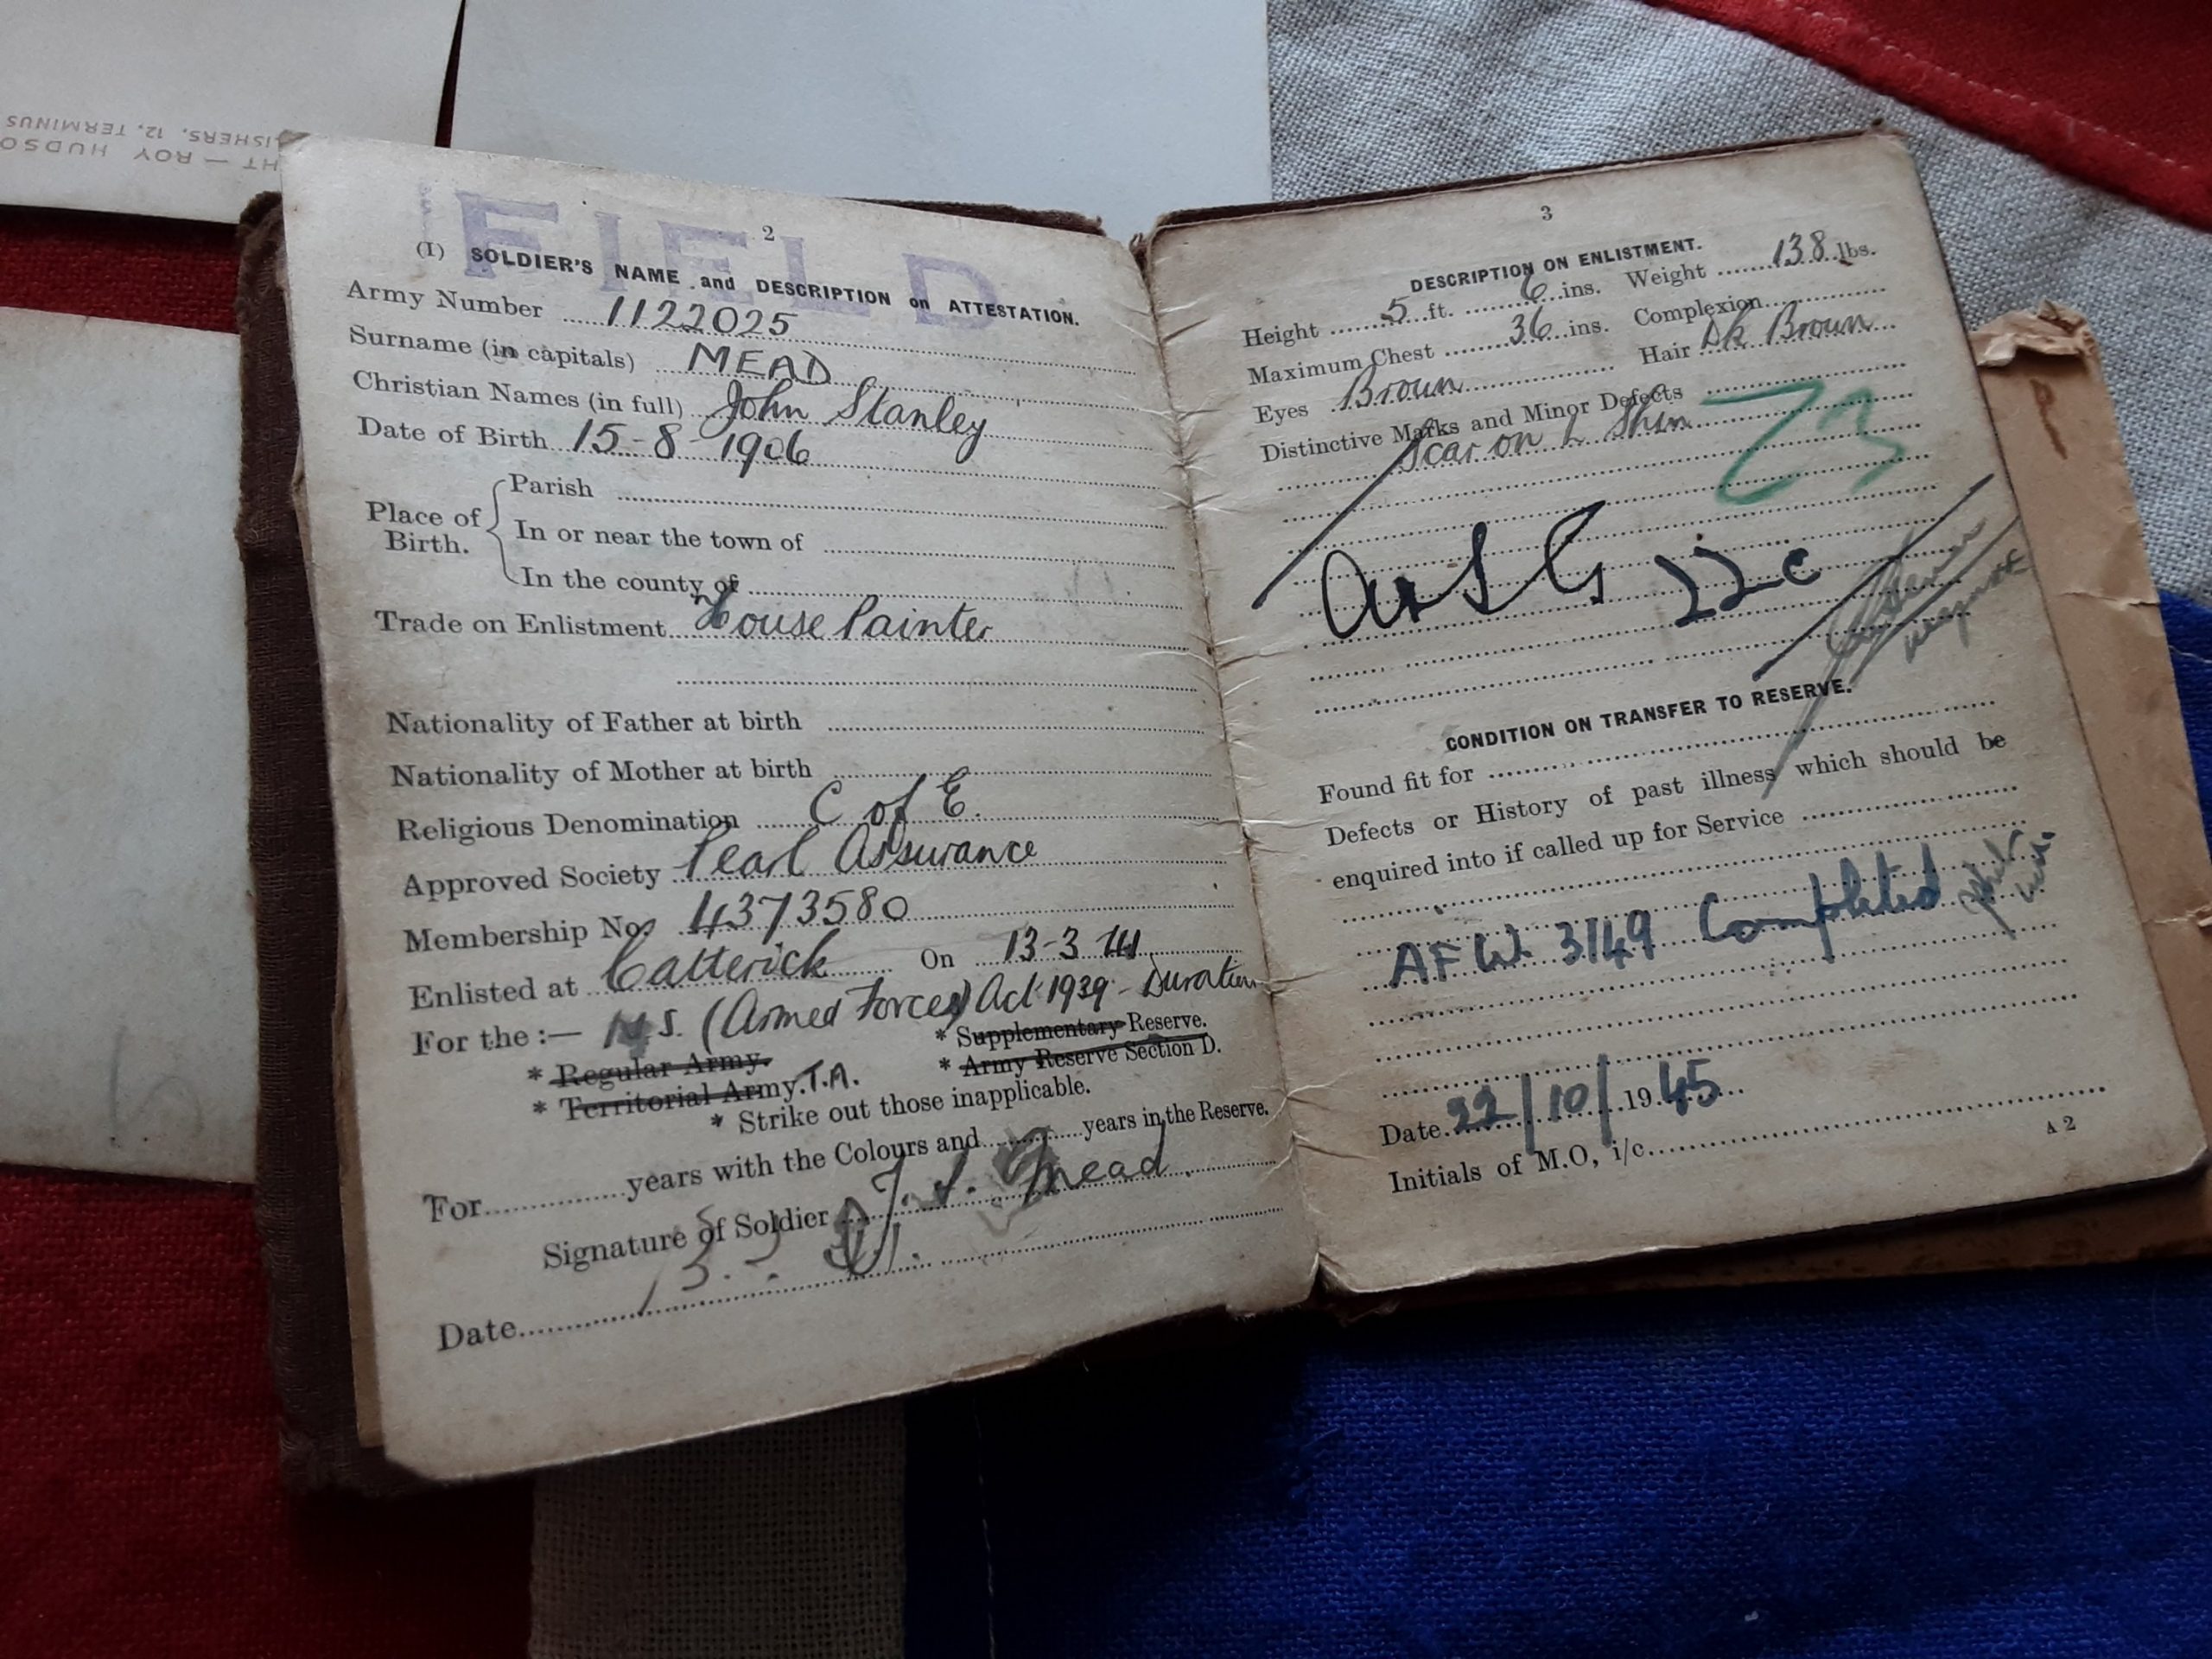 ISHERS, 12, TERMINUS
HT — ROY HUDSO
FIELD
2
(I) SOLDIER'S NAME and DESCRIPTION on ATTESTATION.
Army Number 1122025
Surname (in capitals) MEAD
Christian Names (in full) John Stanley
Date of Birth 15-8-1906
Place of Birth.
Parish
In or near the town of
In the county of
Trade on Enlistment House Painter
Nationality of Father at birth
Nationality of Mother at birth
Religious Denomination C of E.
Approved Society Pearl Assurance
Membership No. 4373580
Enlisted at Catterick On 13-3-41
For the :— N.S. (Armed Forces) Act 1939 - Duration
* Regular Army. * Supplementary Reserve.
* Territorial Army. T.A. * Army Reserve Section D.
* Strike out those inapplicable.
For............years with the Colours and............years in the Reserve.
Signature of Soldier J. S. Mead
Date 13.3.41.
3
DESCRIPTION ON ENLISTMENT.
Height 5 ft. 6 ins. Weight 138 lbs.
Maximum Chest 36 ins. Complexion
Eyes Brown Hair Dk Brown
Distinctive Marks and Minor Defects
Scar on L Shin
Z3
22c
CONDITION ON TRANSFER TO RESERVE.
Found fit for
Defects or History of past illness which should be
enquired into if called up for Service
AFW 3149 Completed
Date 22/10/1945
Initials of M.O, i/c
A 2